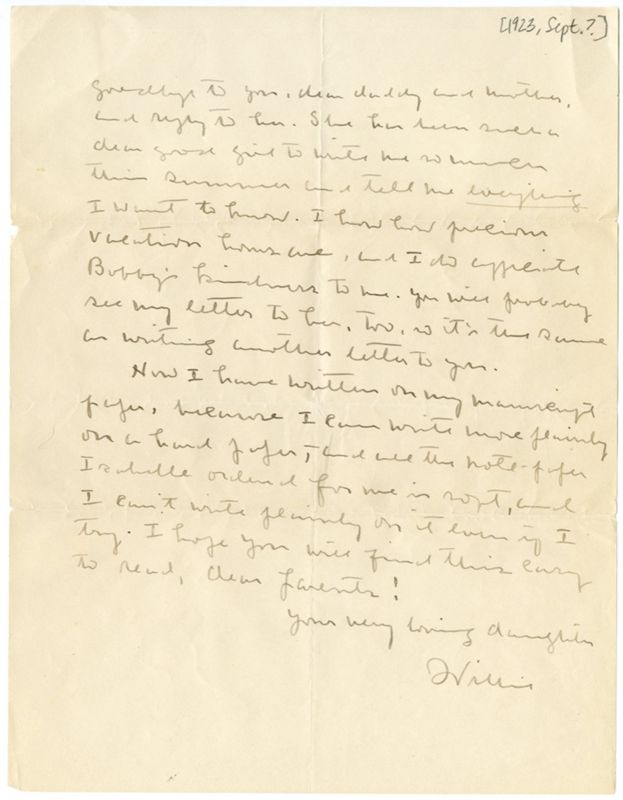 [1923, Sept.?]
goodbye to you, dear daddy and mother,
and reply to her. She has been such a
dear good girl to write me so much
this summer and tell me everything
I want to know. I know how precious
vacation hours are, and I do appreciate
Bobby's kindness to me. You will probably
see my letter to her, too, so it's the same
as writing another letter to you.
Now I have written on my manuscript
paper, because I can write more plainly
on a hard paper, and all the note-paper
Isabelle ordered for me is soft, and
I can't write plainly on it even if I
try. I hope you will find this easy
to read, dear parents!
Your very loving daughter
Willie